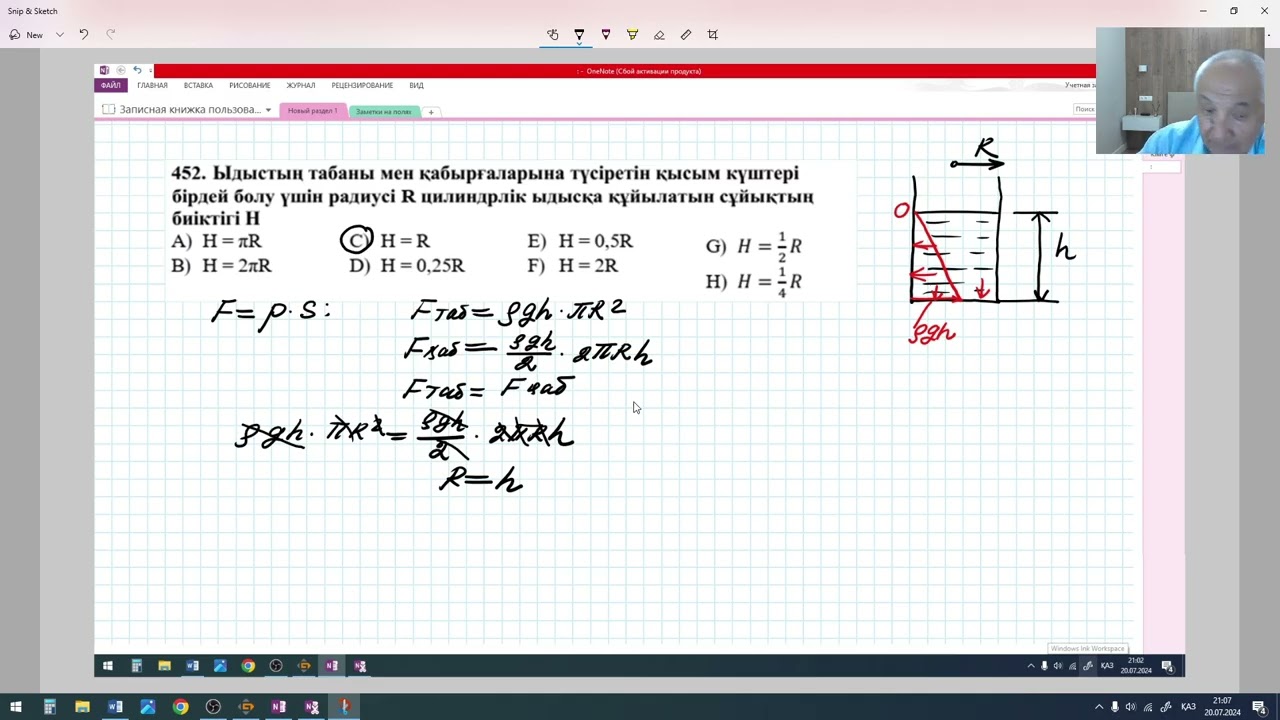 Snip & Sketch
New
: - OneNote (Сбой активации продукта)
ФАЙЛ ГЛАВНАЯ ВСТАВКА РИСОВАНИЕ ЖУРНАЛ РЕЦЕНЗИРОВАНИЕ ВИД
Учетная за
Записная книжка пользова... Новый раздел 1 Заметки на полях +
Поиск
452. Ыдыстың табаны мен қабырғаларына түсіретін қысым күштері
бірдей болу үшін радиусі R цилиндрлік ыдысқа құйылатын сұйықтың
биіктігі H
A) H = πR C) H = R E) H = 0,5R G) H = 1/2 R
B) H = 2πR D) H = 0,25R F) H = 2R H) H = 1/4 R
R
O
h
ρgh
F = p · S :
Fтаб = ρgh · πR²
Fқаб = ρgh/2 · 2πRh
Fтаб = Fқаб
ρgh · πR² = ρgh/2 · 2πRh
R = h
Windows Ink Workspace
ҚАЗ 21:02
20.07.2024
ҚАЗ 21:07
20.07.2024